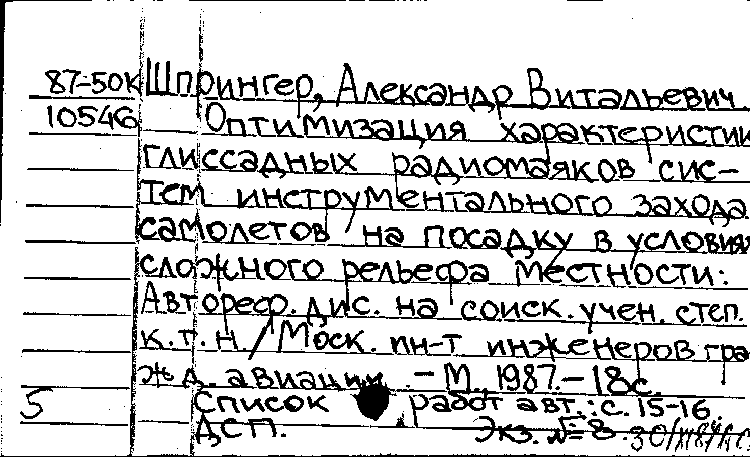 87-50К Шпрингер, Александр Витальевич
10546 Оптимизация характеристи
глиссадных радиомаяков сис-
тем инструментального захода
самолетов на посадку в условия
сложного рельефа местности:
Автореф. дис. на соиск. учен. степ.
к.т.н. / Моск. ин-т инженеров гра
жд. авиации. - М., 1987. - 18с.
5 Список работ авт.: с. 15-16.
ДСП. Экз. № 8.